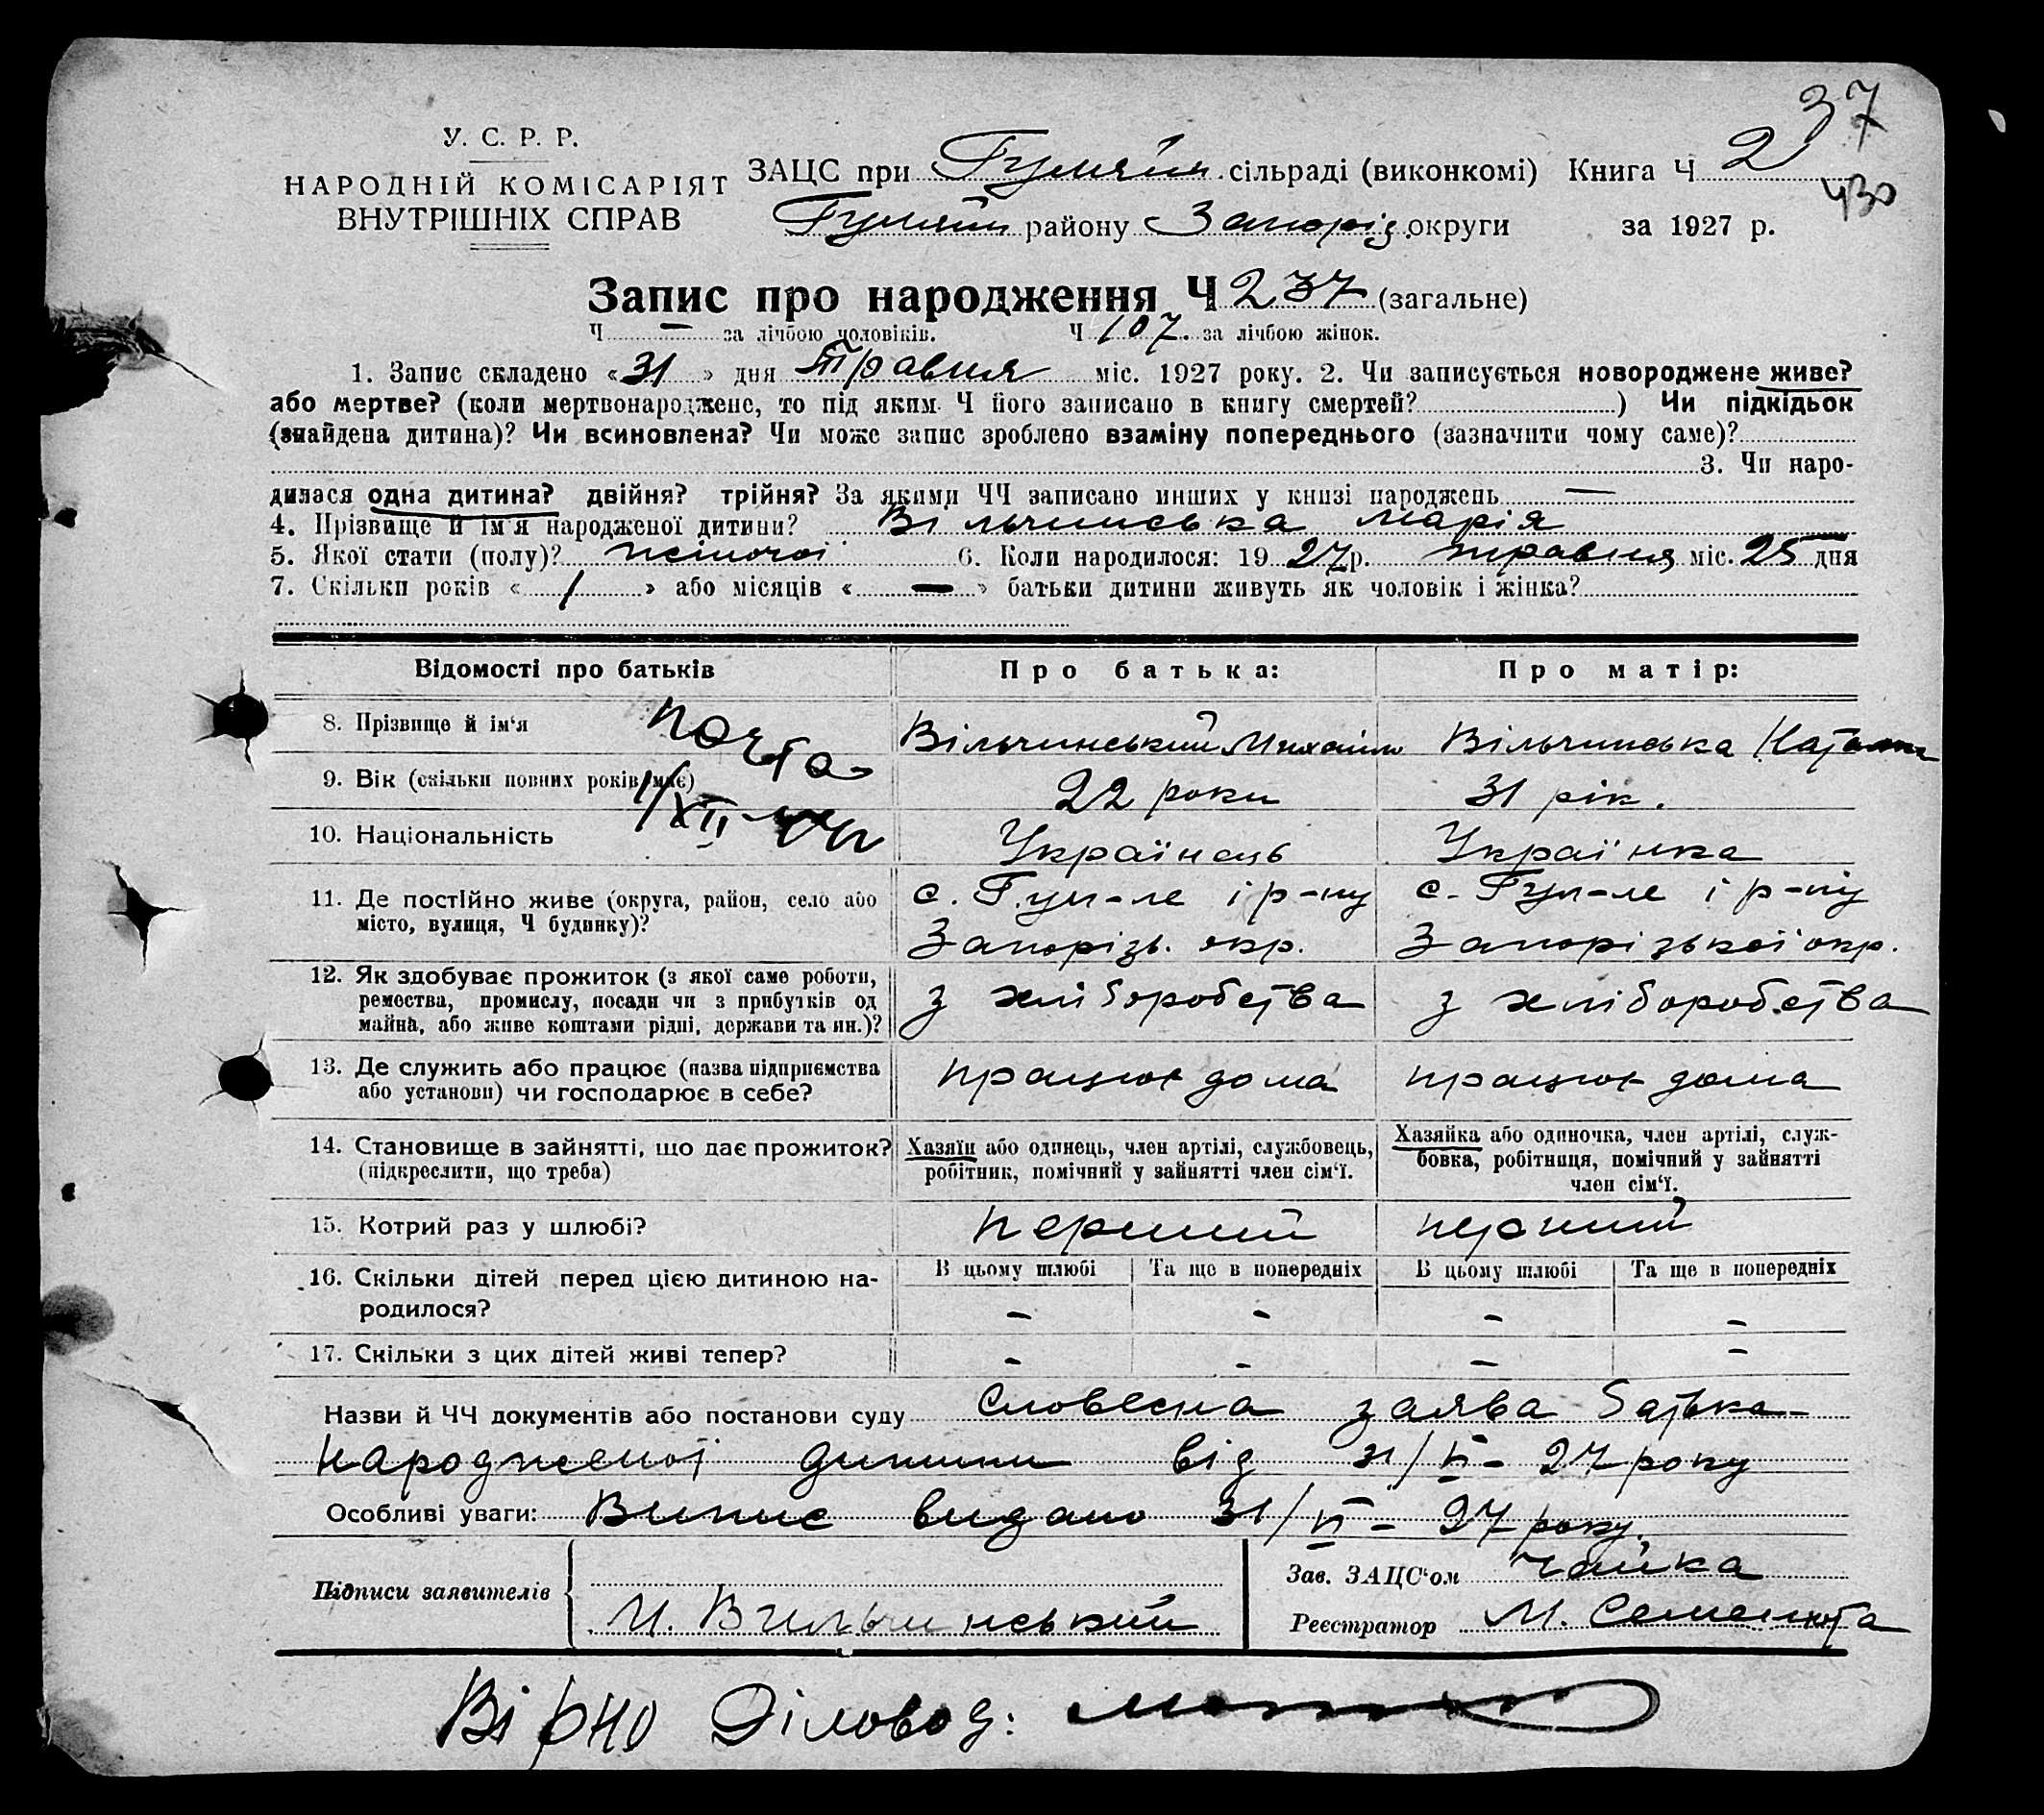 37
У. С. Р. Р.
НАРОДНІЙ КОМІСАРІЯТ
ВНУТРІШНІХ СПРАВ
ЗАЦС при Гуляйп. сільраді (виконкомі) Книга Ч 2
430
Гуляйп району Запоріз. округи за 1927 р.
Запис про народження Ч 237 (загальне)
Ч — за лічбою чоловіків. Ч 107. за лічбою жінок.
1. Запис складено «31» дня травня міс. 1927 року. 2. Чи записується новороджене живе?
або мертве? (коли мертвонароджене, то під яким Ч його записано в книгу смертей?) Чи підкідьок
(знайдена дитина)? Чи всиновлена? Чи може запис зроблено взаміну попереднього (зазначити чому саме)?
3. Чи наро-
дилася одна дитина? двійня? трійня? За якими ЧЧ записано инших у книзі народжень —
4. Прізвище й ім'я народженої дитини? Вільчинська Марія
5. Якої стати (полу)? жіночої 6. Коли народилося: 1927 р. травня міс. 25 дня
7. Скільки років « 1 » або місяців « — » батьки дитини живуть як чоловік і жінка?
Відомості про батьків Про батька: Про матір:
8. Прізвище й ім'я Вільчинський Михайло Вільчинська Наталка
почта
9. Вік (скільки повних років має) 22 роки 31 рік.
1/XII
10. Національність Українець Українка
11. Де постійно живе (округа, район, село або
місто, вулиця, Ч будинку)?
с. Гул-ле і р-ну
Запорізь. окр.
с. Гул-ле і р-ну
Запорізької окр.
12. Як здобуває прожиток (з якої саме роботи,
ремества, промислу, посади чи з прибутків од
майна, або живе коштами рідні, держави та ин.)?
з хліборобства з хліборобства
13. Де служить або працює (назва підприємства
або установи) чи господарює в себе?
працює дома працює дома
14. Становище в зайнятті, що дає прожиток?
(підкреслити, що треба)
Хазяїн або одинець, член артілі, службовець,
робітник, помічний у зайнятті член сім'ї.
Хазяйка або одиночка, член артілі, служ-
бовка, робітниця, помічний у зайнятті
член сім'ї.
15. Котрий раз у шлюбі? перший перший
16. Скільки дітей перед цією дитиною на-
родилося?
В цьому шлюбі Та ще в попередніх В цьому шлюбі Та ще в попередніх
– – – –
17. Скільки з цих дітей живі тепер? – – – –
Назви й ЧЧ документів або постанови суду Словесна заява батька
народженої дитини від 31/V – 27 року
Особливі уваги: Випис видано 31/V – 27 року.
Підписи заявителів М. Вильчинський
Зав. ЗАЦС'ом Чайка
Реєстратор М. Семенюта
Вірно Діловод: